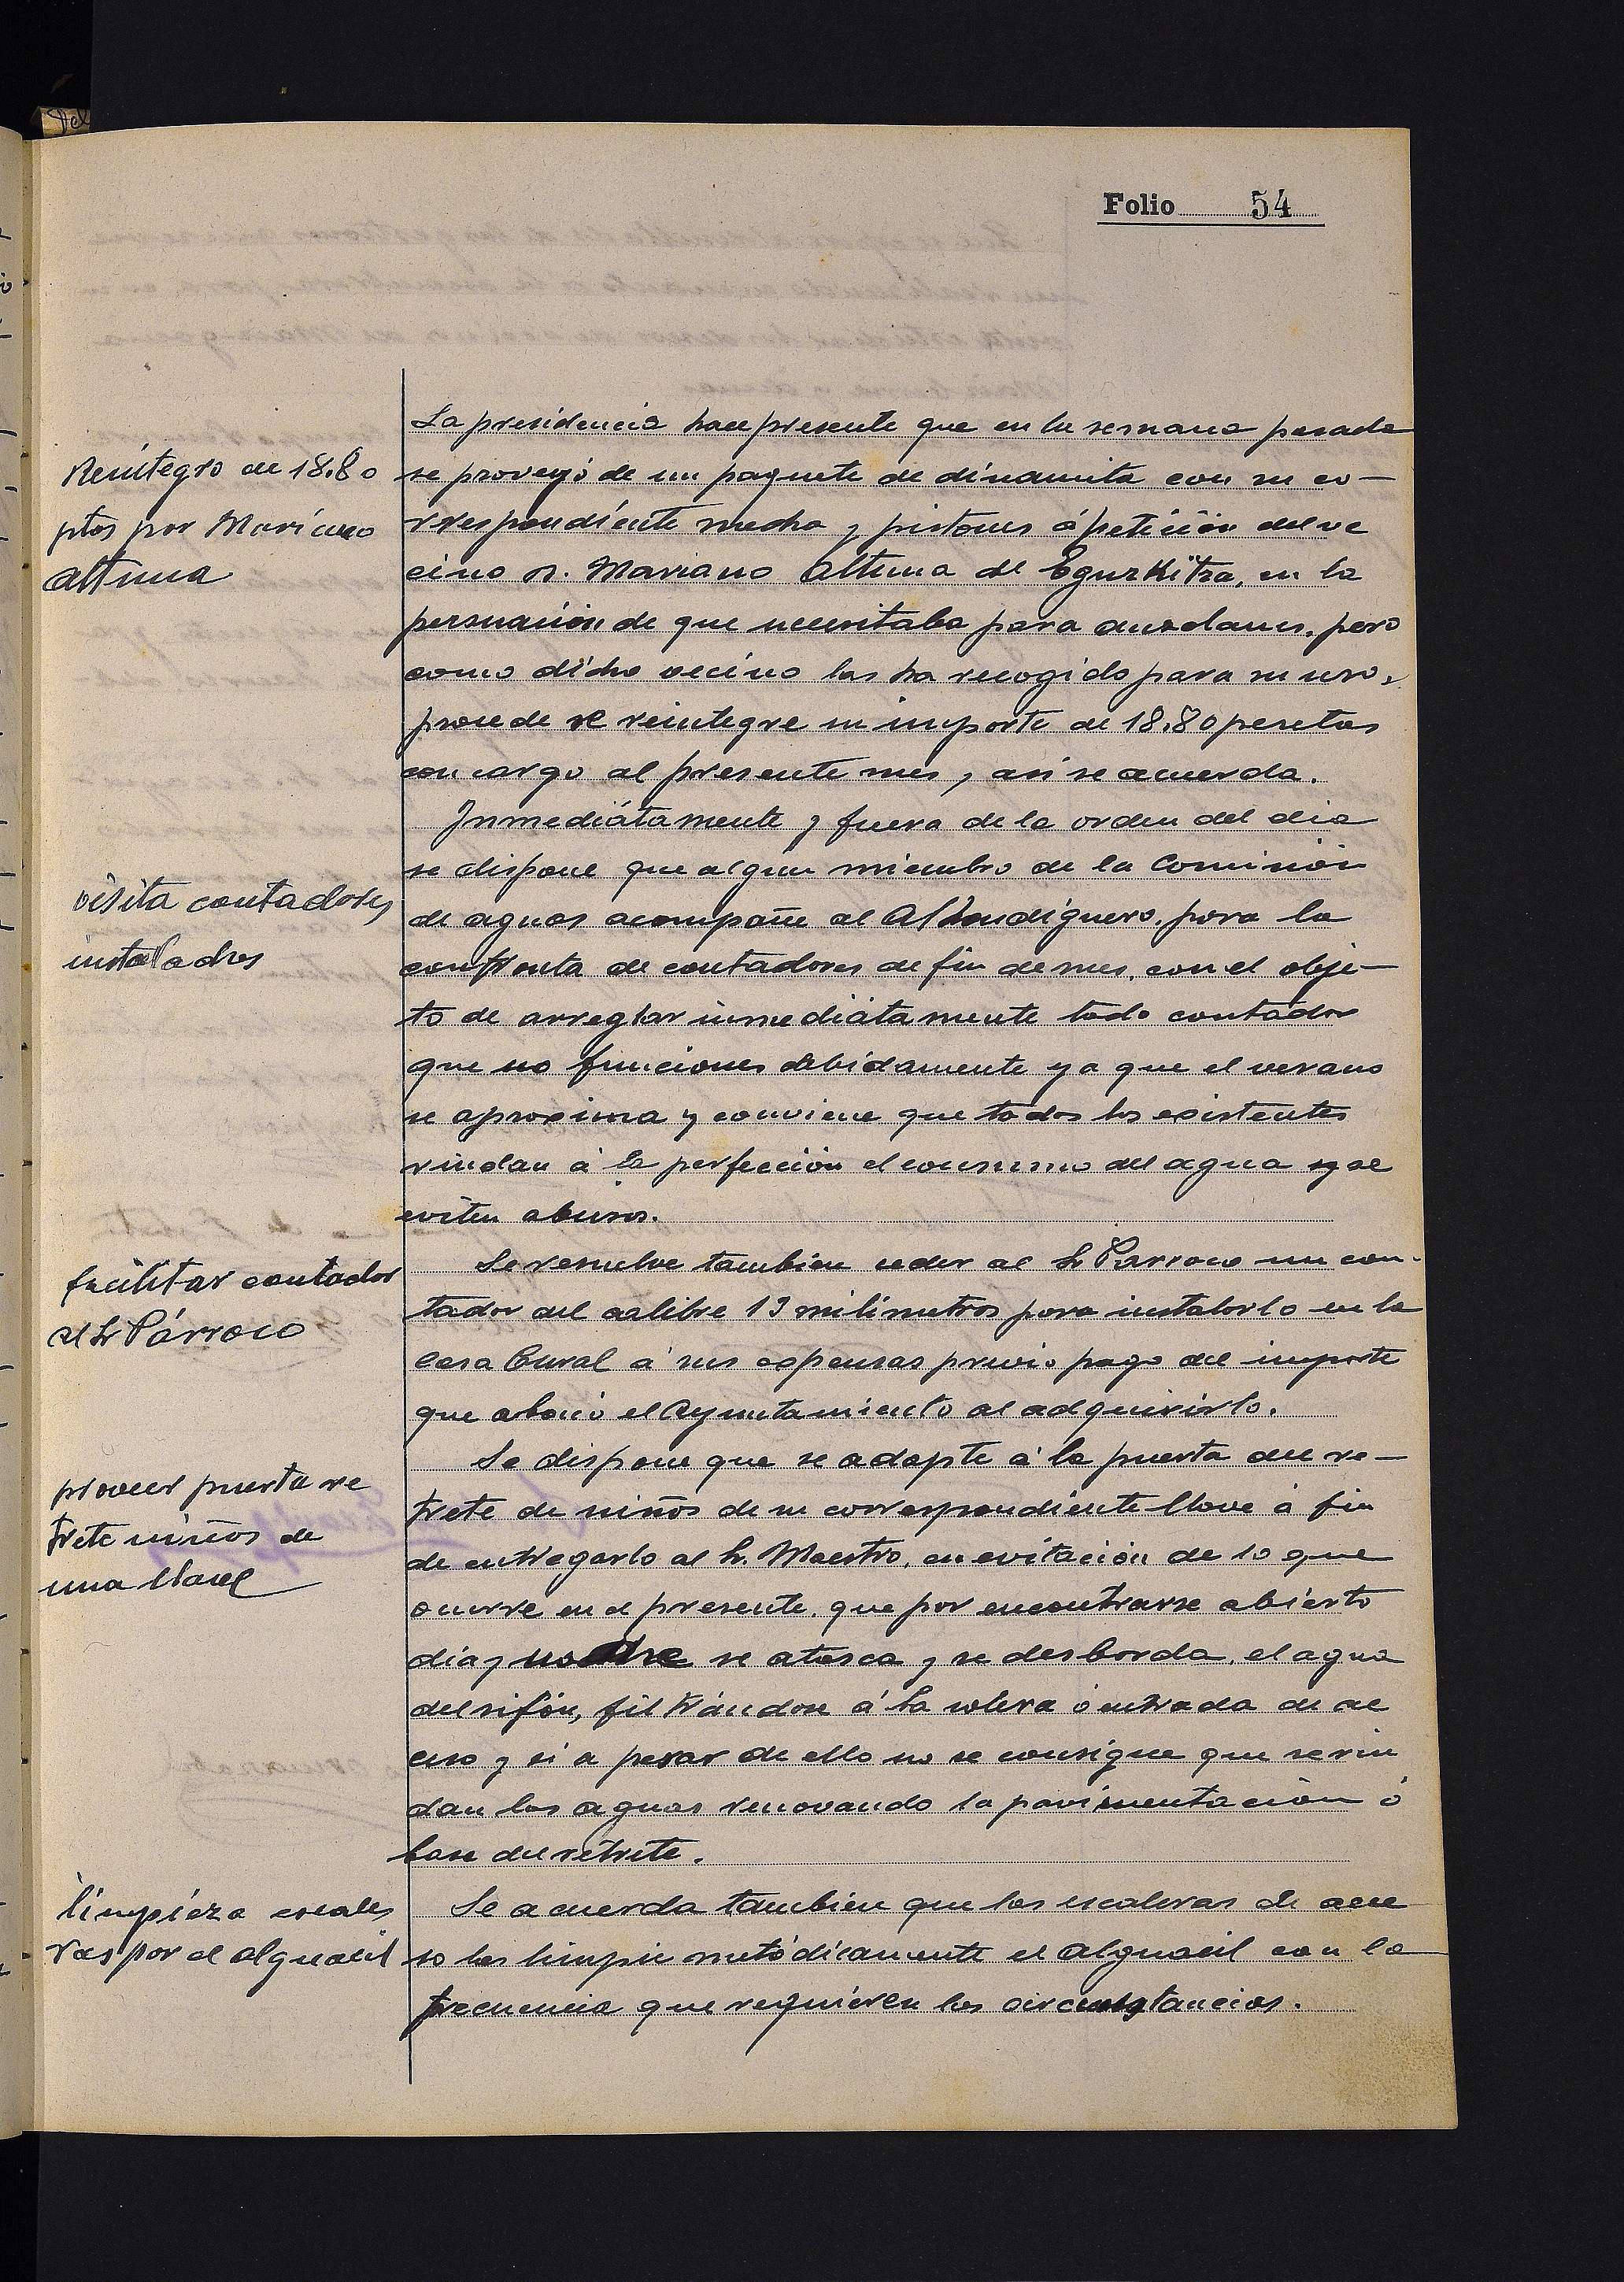 Folio 54
La presidencia hace presente que en la semana pasada
Reintegro de 18.80
ptas por Mariano
Altuna
se proveyó de un paquete de dinamita con su co—
rrespondiente mecha y pistones á petición del ve
cino D. Mariano Altuna de Egurkitza, en la
persuación de que necesitaba para auzolanes, pero
como dicho vecino las ha recogido para su uso,
procede se reintegre su importe de 18.80 pesetas
con cargo al presente mes, asi se acuerda.
Inmediátamente y fuera de la orden del dia
visita contadores
instalados
se dispone que algun miembro de la Comisión
de aguas acompañe al Alhondiguero, para la
confronta de contadores de fin de mes, con el obje—
to de arreglar inmediátamente todo contador
que no funciones debidamente ya que el verano
se aproxima y conviene que todos los existentes
rindan á la perfección el consumo del agua y se
eviten abusos.
facilitar contador
al Sr Párroco
Se resuelve tambien ceder al Sr Párroco un con-
tador del calibre 13 milimetros para instalarlo en la
Casa Cural á sus expensas previo pago del importe
que abonó el Ayuntamiento al adquirirlo.
proveer puerta re
trete niños de
una llave
Se dispone que se adapte á la puerta del re—
trete de niños de su correspondiente llave á fin
de entregarlo al Sr. Maestro, en evitación de lo que
ocurre en el presente, que por encontrarse abierto
dia y noche se atasca y se desborda, el agua
del sifón, filtrándose á la solera ó entrada de ac
ceso y si a pesar de ello no se consigue que se rin
dan las aguas renovando la pavimentación ó
base del retrete.
limpieza escale
ras por el alguacil
Se acuerda tambien que las escaleras de acce
so las limpie metódicamente el Alguacil con la
frecuencia que requieren las circunstancias.